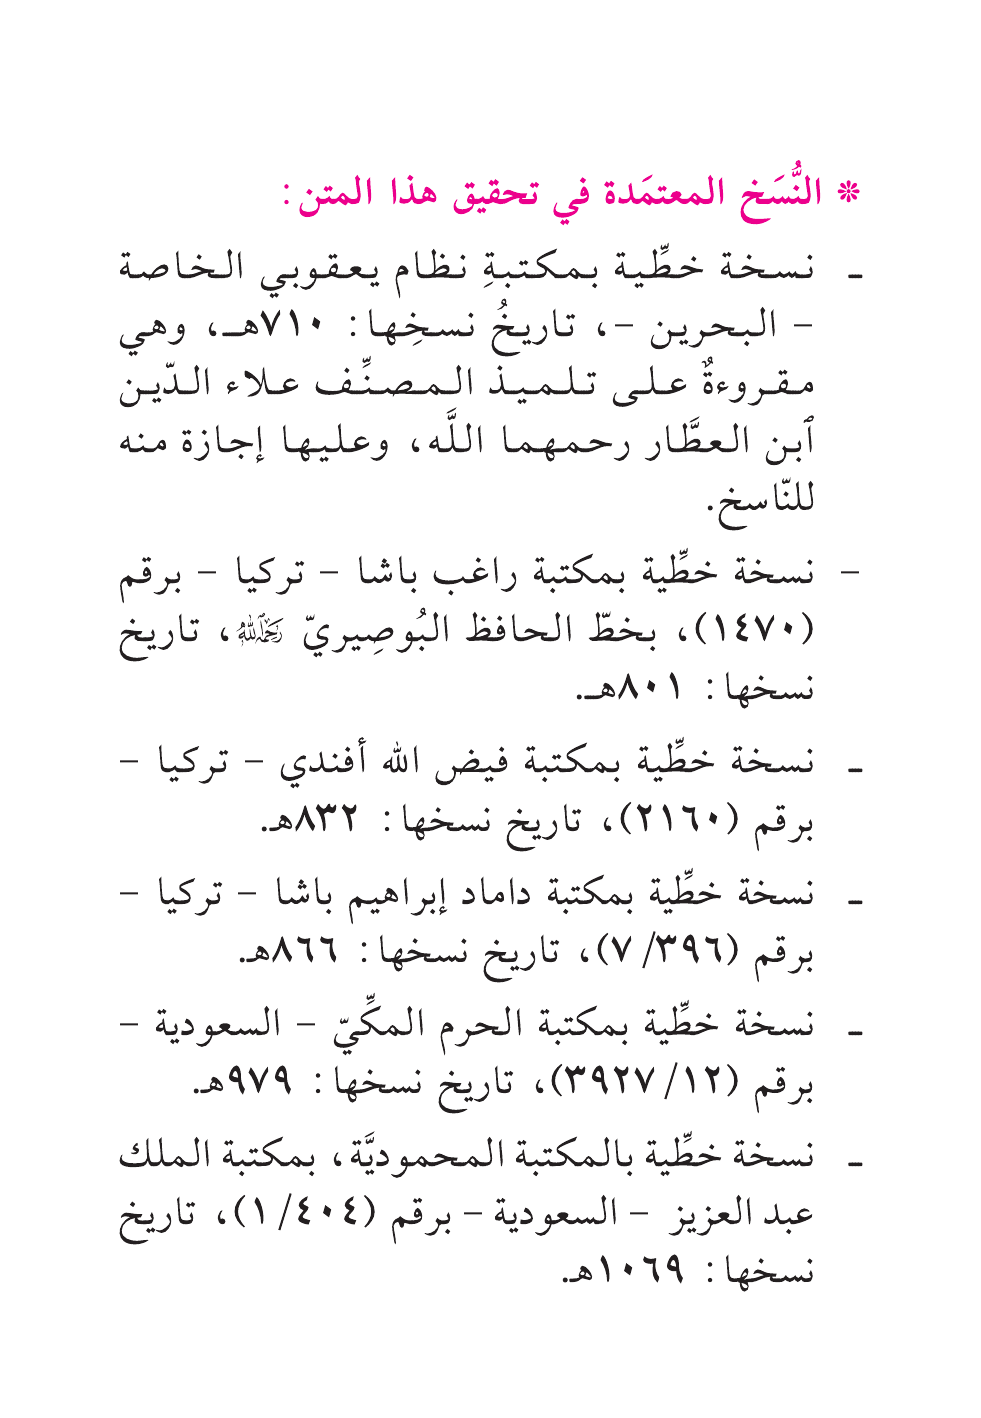 * النُّسَخ المعتمَدة في تحقيق هذا المتن:
ـ نسخة خطِّية بمكتبةِ نظام يعقوبي الخاصة
– البحرين –، تاريخُ نسخِها: ٧١٠هـ، وهي
مقروءةٌ على تلميذ المصنِّف علاء الدّين
ٱبن العطَّار رحمهما اللَّه، وعليها إجازة منه
للنّاسخ.
– نسخة خطِّية بمكتبة راغب باشا – تركيا – برقم
(١٤٧٠)، بخطّ الحافظ البُوصِيريّ رَحِمَهُ اللَّهُ، تاريخ
نسخها: ٨٠١هـ.
ـ نسخة خطِّية بمكتبة فيض الله أفندي – تركيا –
برقم (٢١٦٠)، تاريخ نسخها: ٨٣٢هـ.
ـ نسخة خطِّية بمكتبة داماد إبراهيم باشا – تركيا –
برقم (٧/٣٩٦)، تاريخ نسخها: ٨٦٦هـ.
ـ نسخة خطِّية بمكتبة الحرم المكِّيّ – السعودية –
برقم (٣٩٢٧/١٢)، تاريخ نسخها: ٩٧٩هـ.
ـ نسخة خطِّية بالمكتبة المحموديَّة، بمكتبة الملك
عبد العزيز – السعودية – برقم (١/٤٠٤)، تاريخ
نسخها: ١٠٦٩هـ.